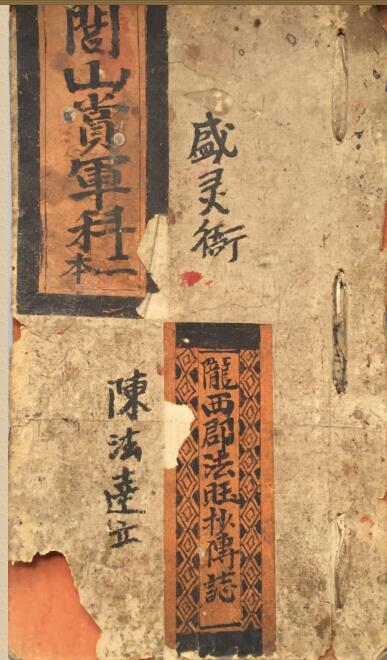 盛灵衙
隴西郡法旺抄傳誌
閭山賞軍科二本
陳法達立